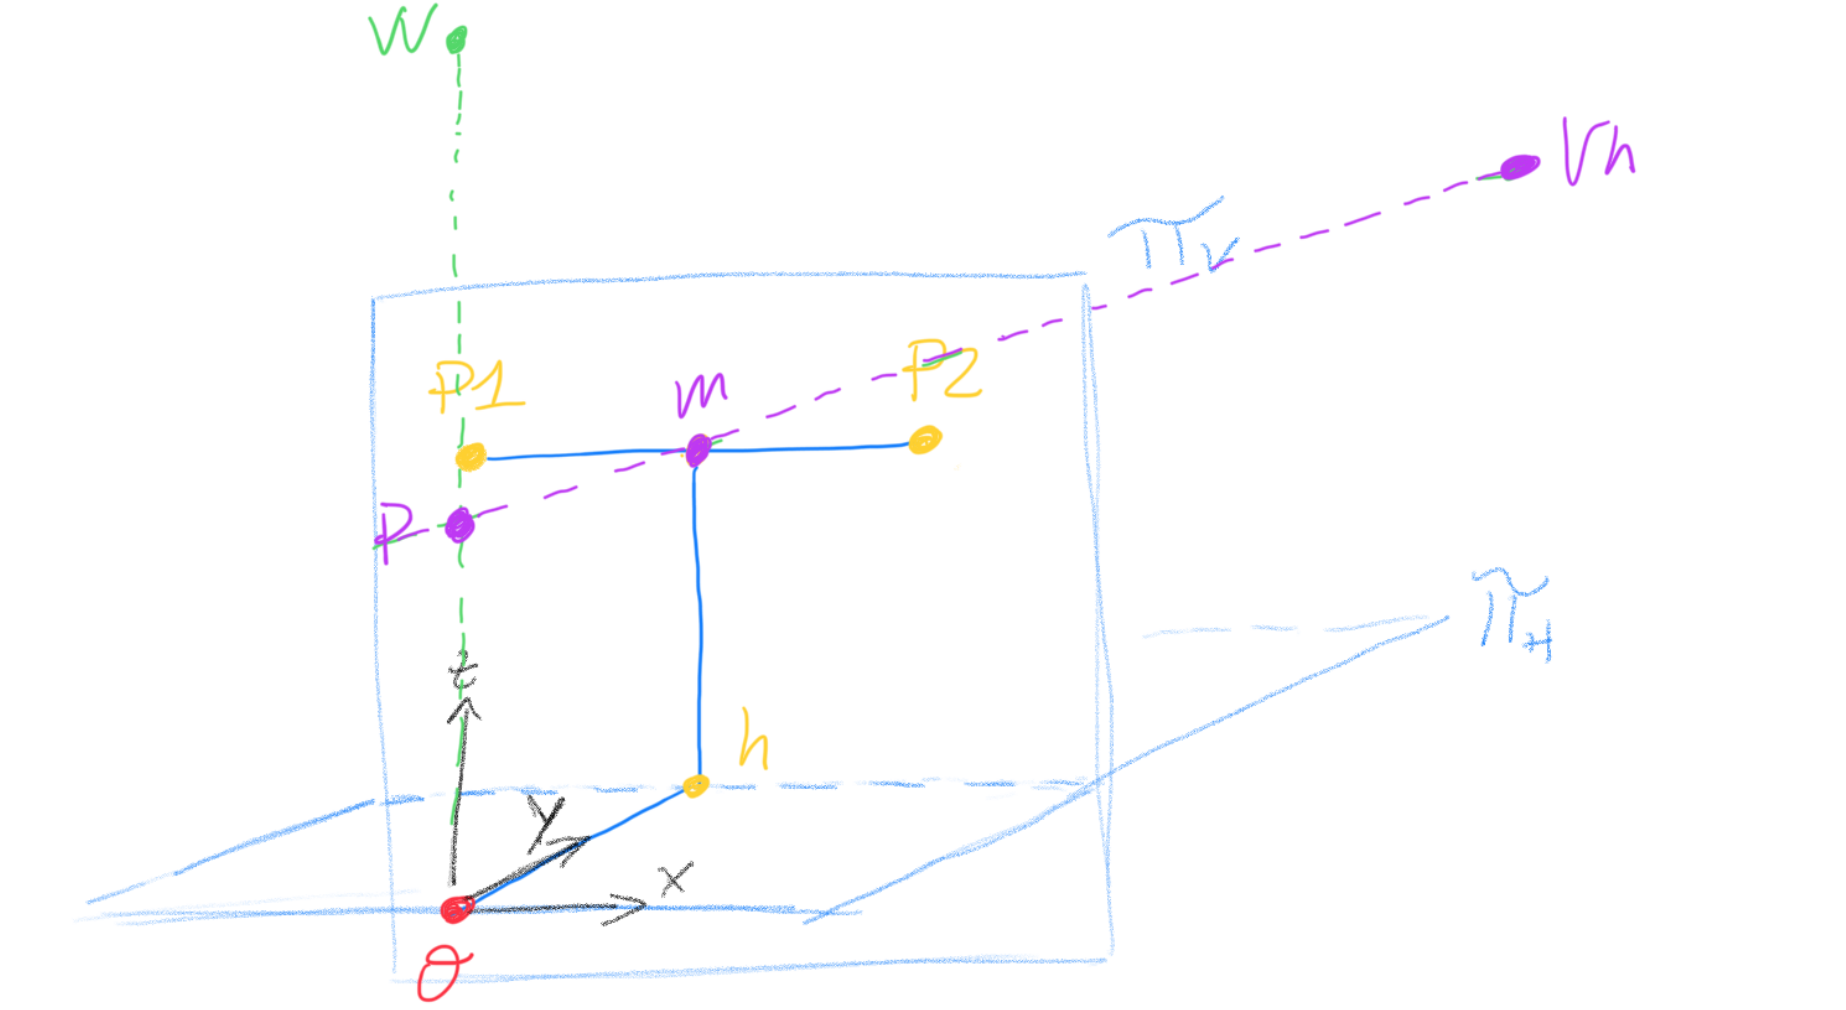 W
Vh
πv
P1
m
P2
P
πH
z
h
y
x
O